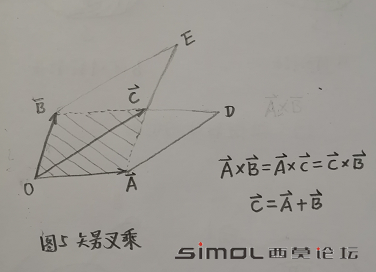 E
B⃗
C⃗
D
O
A⃗
A⃗×B⃗=A⃗×C⃗=C⃗×B⃗
C⃗=A⃗+B⃗
图5 矢量叉乘
simol西莫论坛